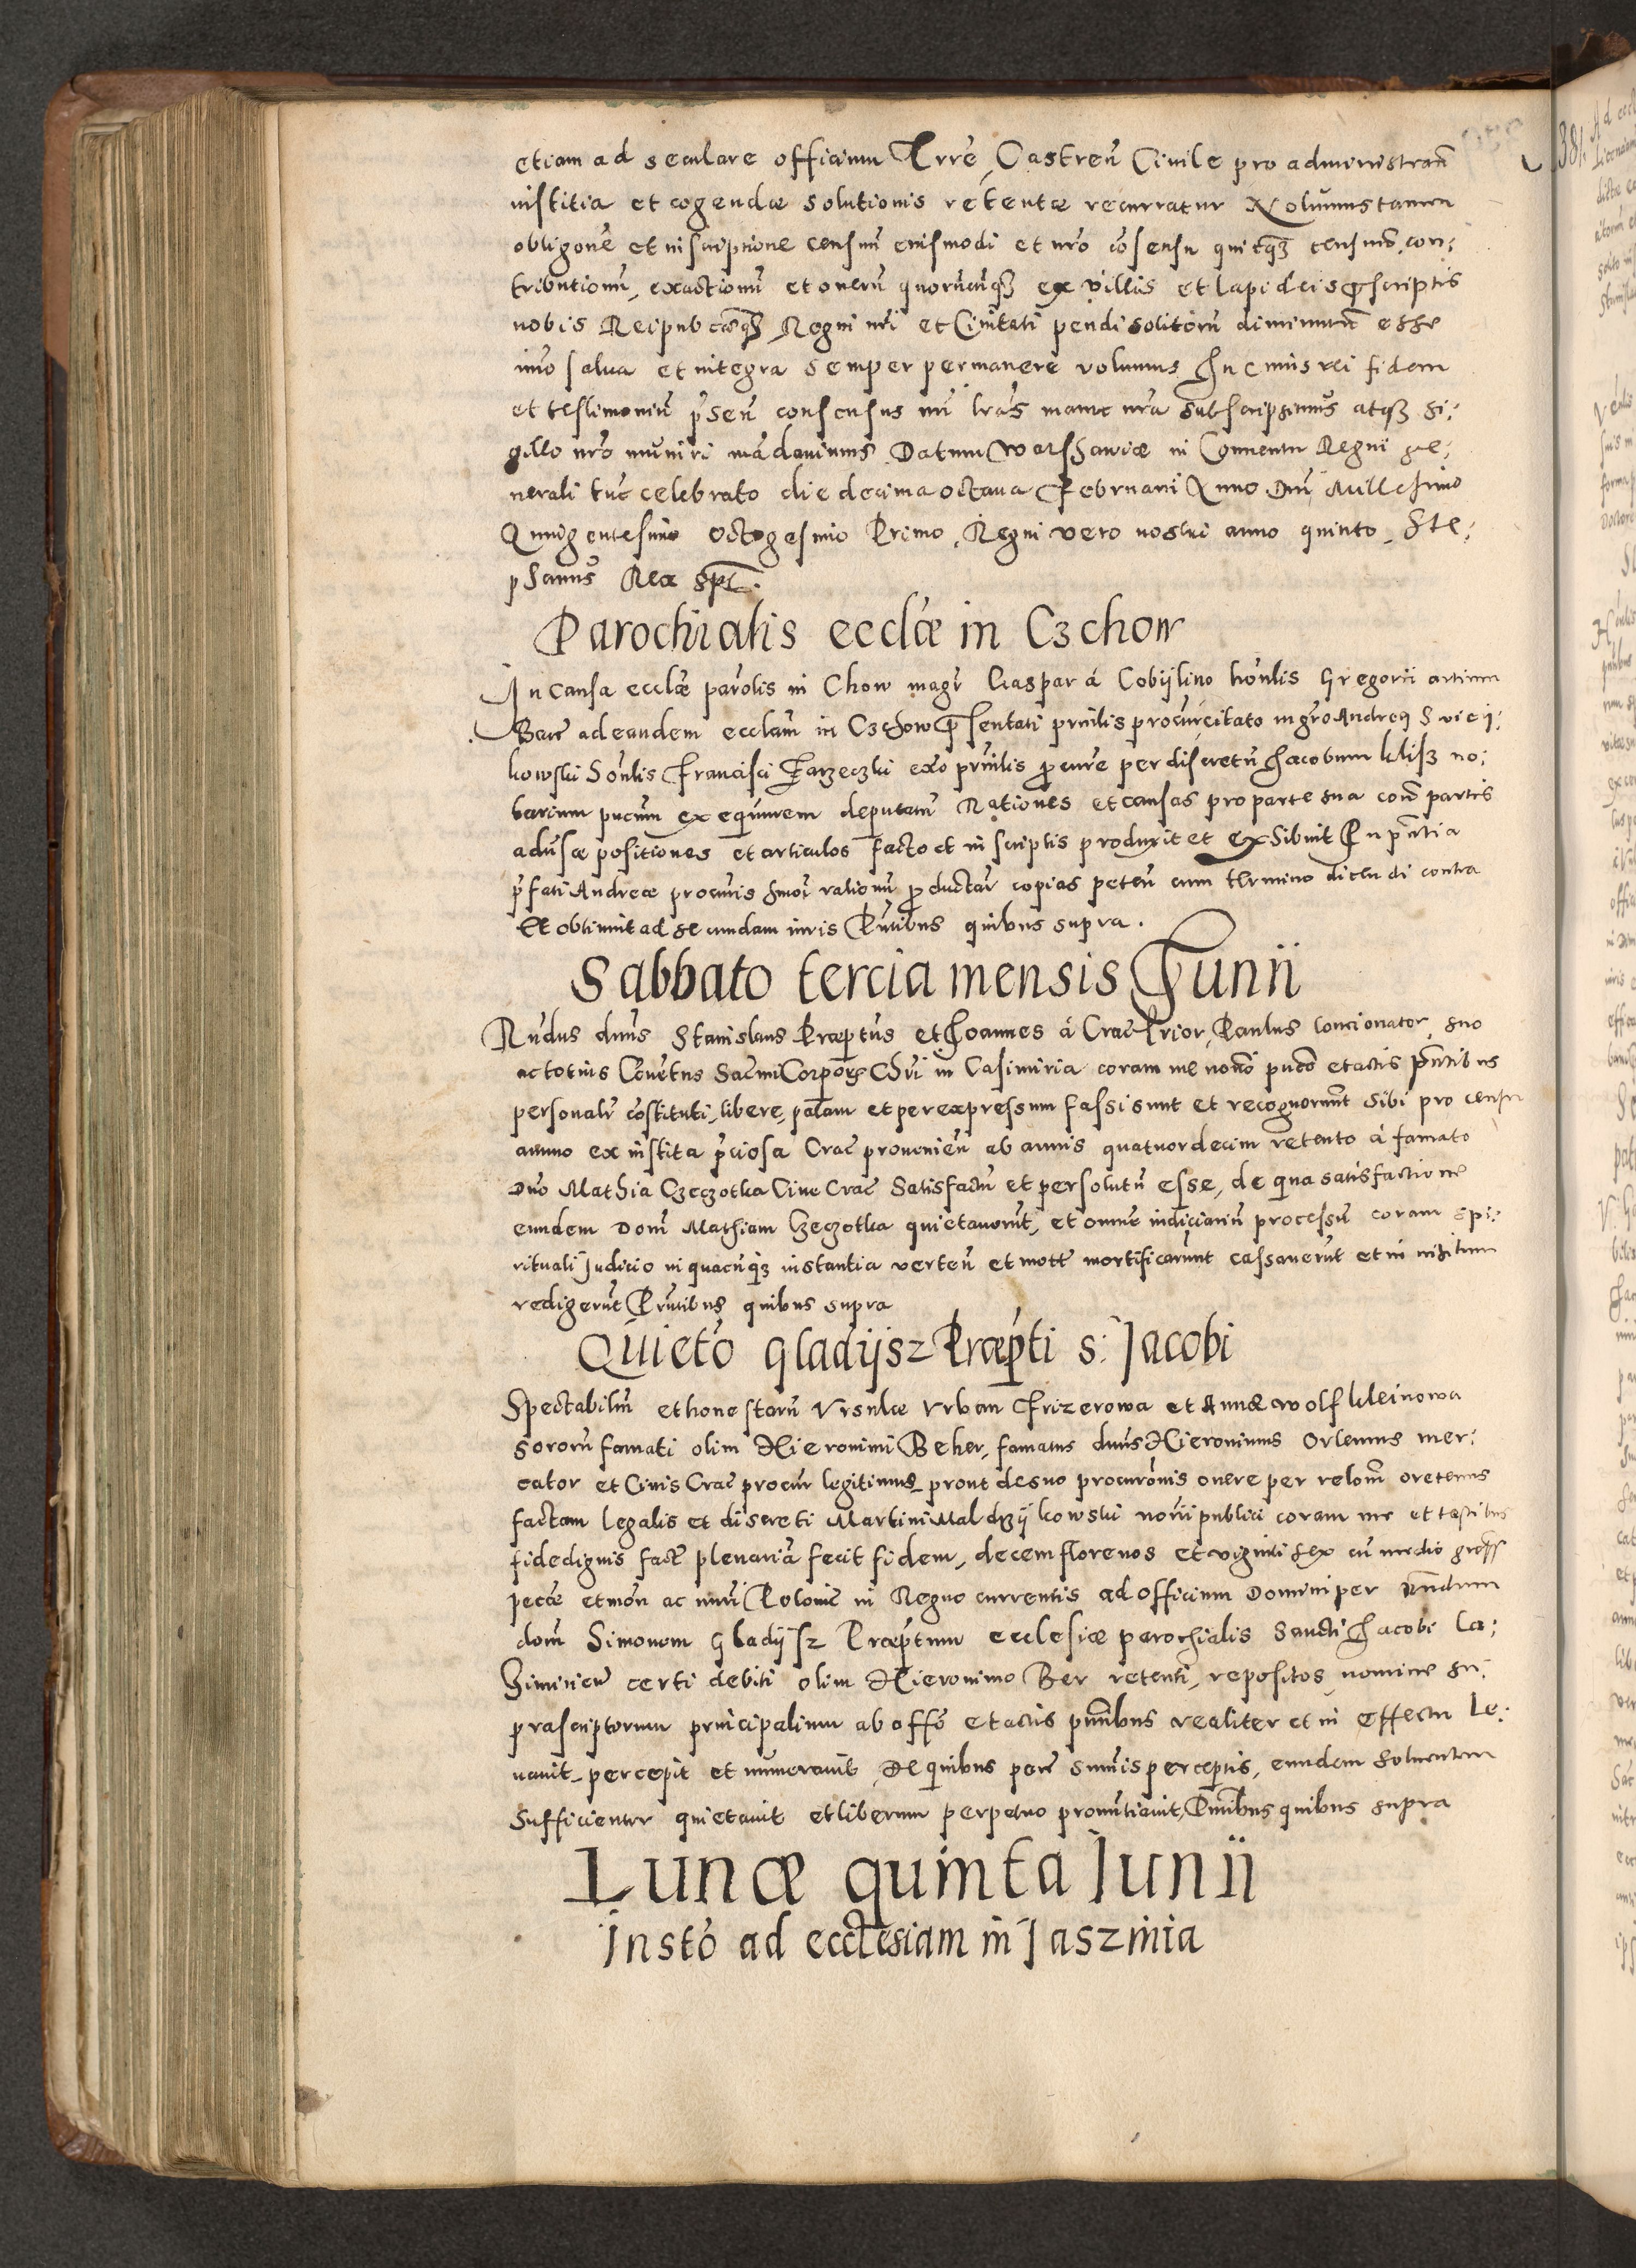 etiam ad seculare officium Trrē, Castreñ Civile pro administrañ
iustitia et cogendæ solutionis retentæ recurratur Nolumus tamen
obligone et inscriptione censuū eiusmodi et nrō cōsensu quicq₃ censuū, con:
tributionū, exactionū et onerū quorūcūq₃ ex villis et lapideis pscriptis
nobis Reipubcæq₃ Regni nri et Civitati pendi solitorū diminutū esse
imo salva et integra semper permanere volumus In cuius rei fidem
et testimoniū pseñ consensus nrī lrās manu nrā subscripsimus atq₃ si:
gillo nrō muniri mādavimus Datum Warshawiæ in Conventu Regni ge:
nerali tūc celebrato die decima octava Februarii Anno Dnī Millesimo
Quingentesimo octogesimo Primo, Regni vero nostri anno quinto, Ste:
phanus Rex spt.
Parochialis ecclæ in Czchow
In causa ecclæ parolis in Chow magr Gaspar á Cobijlino honlis Gregorii artium
Bacc ad eandem ecclam in Czchow psentati prinlis procur citato mgro Andrea Svicij:
kowski honlis Francisci Farzeczki exo prinlis pcure per discretū Jacobum Klisz no:
tarium pucum ex eqūurem deputatū Rationes et causas pro parte sua con partis
adūsæ positiones et articulos facto et in scriptis produxit et exhibuit In pñtia
pfati Andreæ procuris hmoī rationū pductar copias peteñ cum termino dicendi contra
Et obtinuit ad secundam iuris Pñtibus quibus supra.
Sabbato tercia mensis Junii
Rñdus dnus Stanislaus Præptus et Joannes á Crac Prior, Paulus Concionator suo
ac totius Convētus Sacmi Corporis Chri in Casimiria coram me notō puco et actis pñtibus
personalr cōstituti, libere, palam et per expressum fassi sunt et recognorunt sibi pro censu
annuo ex instita pciosa Crac provenieñ ab annis quatuordecim retento á famato
Dno Mathia Czeczotka Cive Crac satisfactū et persolutū esse, de qua satisfactione
eundem Dom Mathiam Czeczotka quietaverūt, et omne iudiciariū processū coram spi:
rituali Judicio in quacūq₃ instantia verteñ et mott mortificarunt cassaverūt et in nihilum
redigerūt Pñtibus quibus supra
Quieto Gladijsz Præpti s: Jacobi
Spectabiliū et honestarū Ursulæ Urban Frizerowa et Annæ Wolf Kleinowa
sororū famati olim Hieronimi Beher, famatus dnus Hieronimus Orlemus mer:
cator et Civis Crac procur legitimus, prout de suo procurōnis onere per relom oretenus
factam legalis et discreti Martini Maldrzijkowski norii publici coram me et testibus
fidedignis fact plenariā fecit fidem, decem florenos et viginti sex cū medio gross
pecce et moñ ac nuri Polonic in Regno currentis ad officium Domini per Rndum
dom Simonem Gladijsz Præptum ecclesiæ parochialis Sancti Jacobi Ca:
simirien certi debiti olim Hieronimo Ber retenti, repositos, nomine su:
prascriptorum principalium ab offō et actis pntibus realiter et in effectu Le:
uauit, percepit et numerauit, De quibus pore summis perceptis, eundem solventem
sufficienter quietauit et liberum perpetuo pronuntiauit, Pñtibus quibus supra
Lunæ quinta Junii
Insto ad ecclesiam in Jaszinia